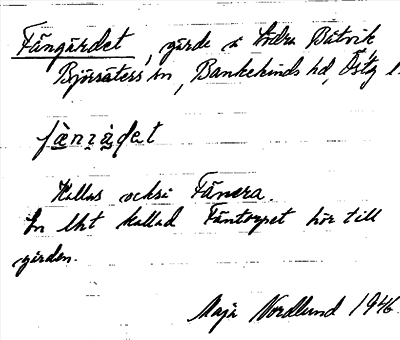 Fängärdet, gärde i Södra Båtvik
Björsäters sn, Bankekinds hd, Östg l.
Kallas också Fänera.
En lht kallad Fäntorpet hör till
gården.
Maja Nordlund 1946.